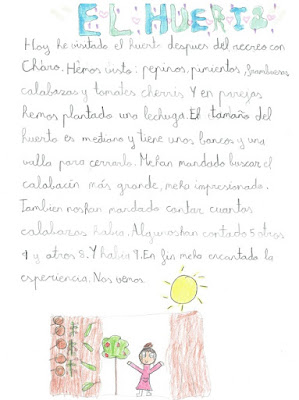 EL HUERTO
Hoy he visitado el huerto despues del recreo con
Charo. Hemos visto: pepinos, pimientos, frambuesas,
calabazas y tomates cherris. Y en parejas
hemos plantado una lechuga. El tamaño del
huerto es mediano y tiene unos bancos y una
valla para cerrarlo. Mehan mandado buscar el
calabacín más grande, meha impresionado.
Tambien noshan mandado contar cuantas
calabazas habia. Algunoshan contado 5 otros
9 y otros 8. Y habia 9. En fin meha encantado la
esperiencia. Nos vemos.